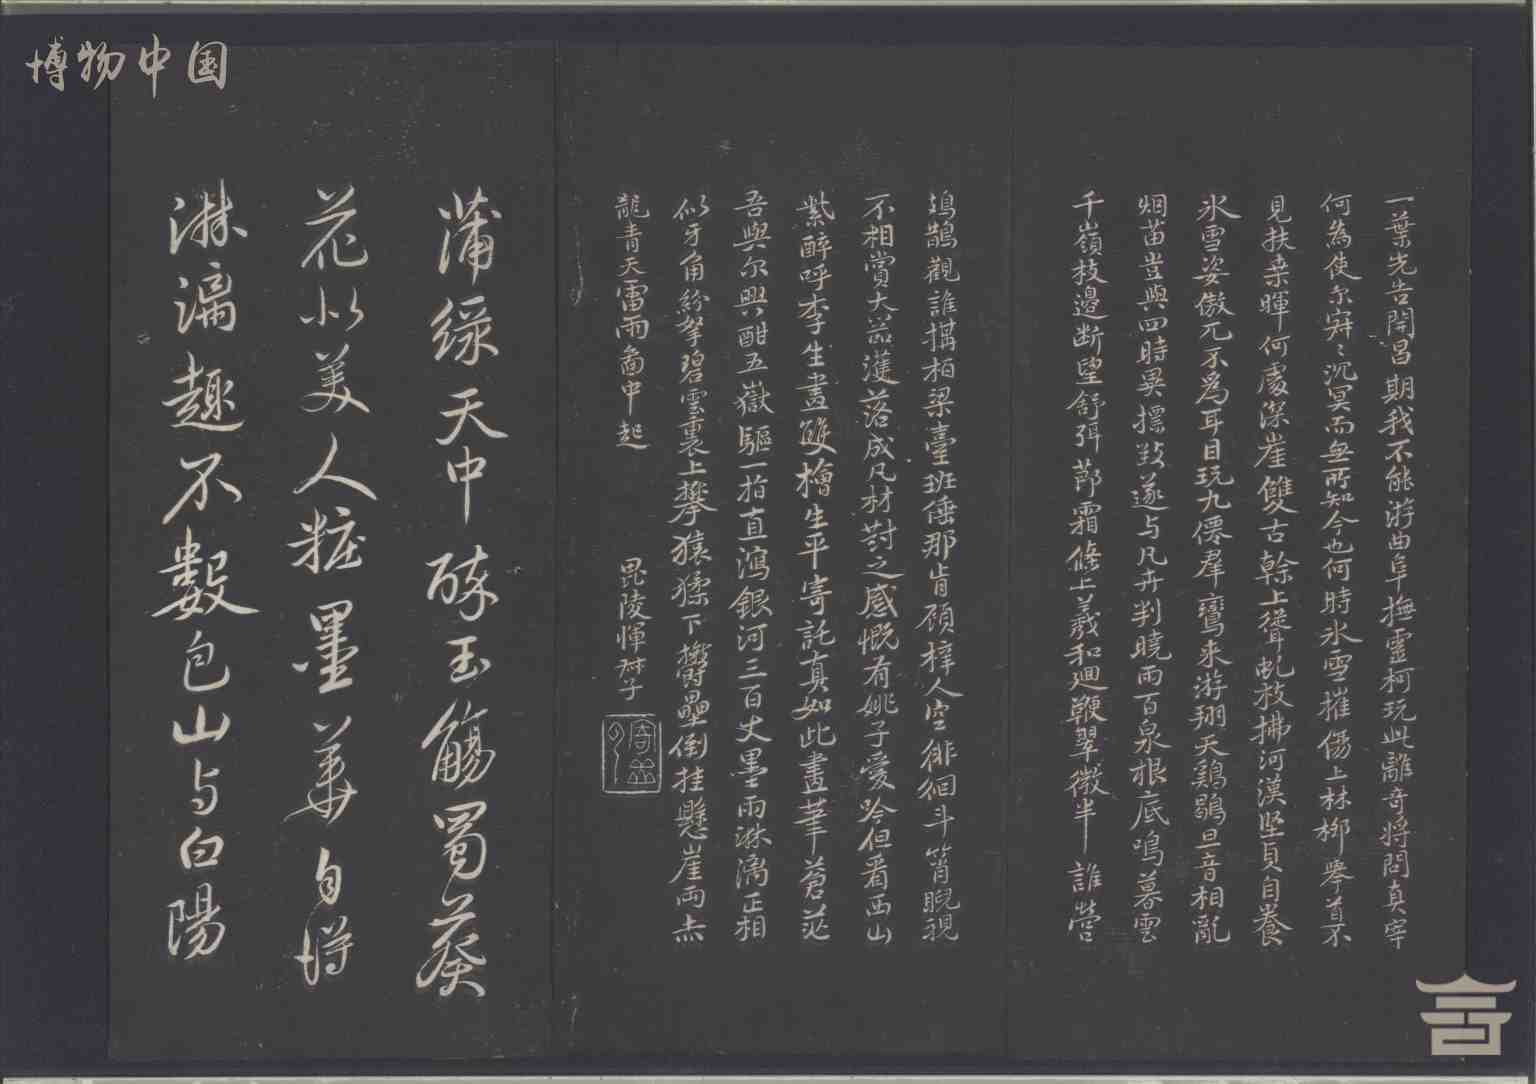 博物中国
一葉先告開昌期我不能游曲阜撫靈柯玩此離奇將問真宰
何為使尔窅〻沉冥而無所知今也何時氷雪摧傷上林柳擧首不
見扶桒暉何處深崖雙古榦上聳虬枝拂河漢堅貞自養
氷雪姿傲兀不爲耳目玩九僊羣鸞来游翔天鷄鶡旦音相亂
烟苗豈與四時異擂遂与凡卉判曉雨百泉根底鳴暮雲
千嶺枝邊断望舒弭節霜條上羲和廻鞭翠微半誰營
鳷鵲觀誰搆栢梁臺班倕那肯顾梓人空徘徊斗筲睨視
不相賞大器濩落成凡材對之感慨有姚子愛吟但看西山
紫醉呼李生畫雙檜生平寄託真如此畫筆蒼茫
吾與尔興酣五嶽驅一指直瀉銀河三百丈墨雨淋漓正相
似牙角紛拏碧雲裏上攀猿猱下欝壘倒挂懸崖两赤
龍青天雷雨畵中起 毘陵惲格子
蒲綠天中醉玉觴蜀葵
花以美人粧墨華自得
淋漓趣不數包山与白陽